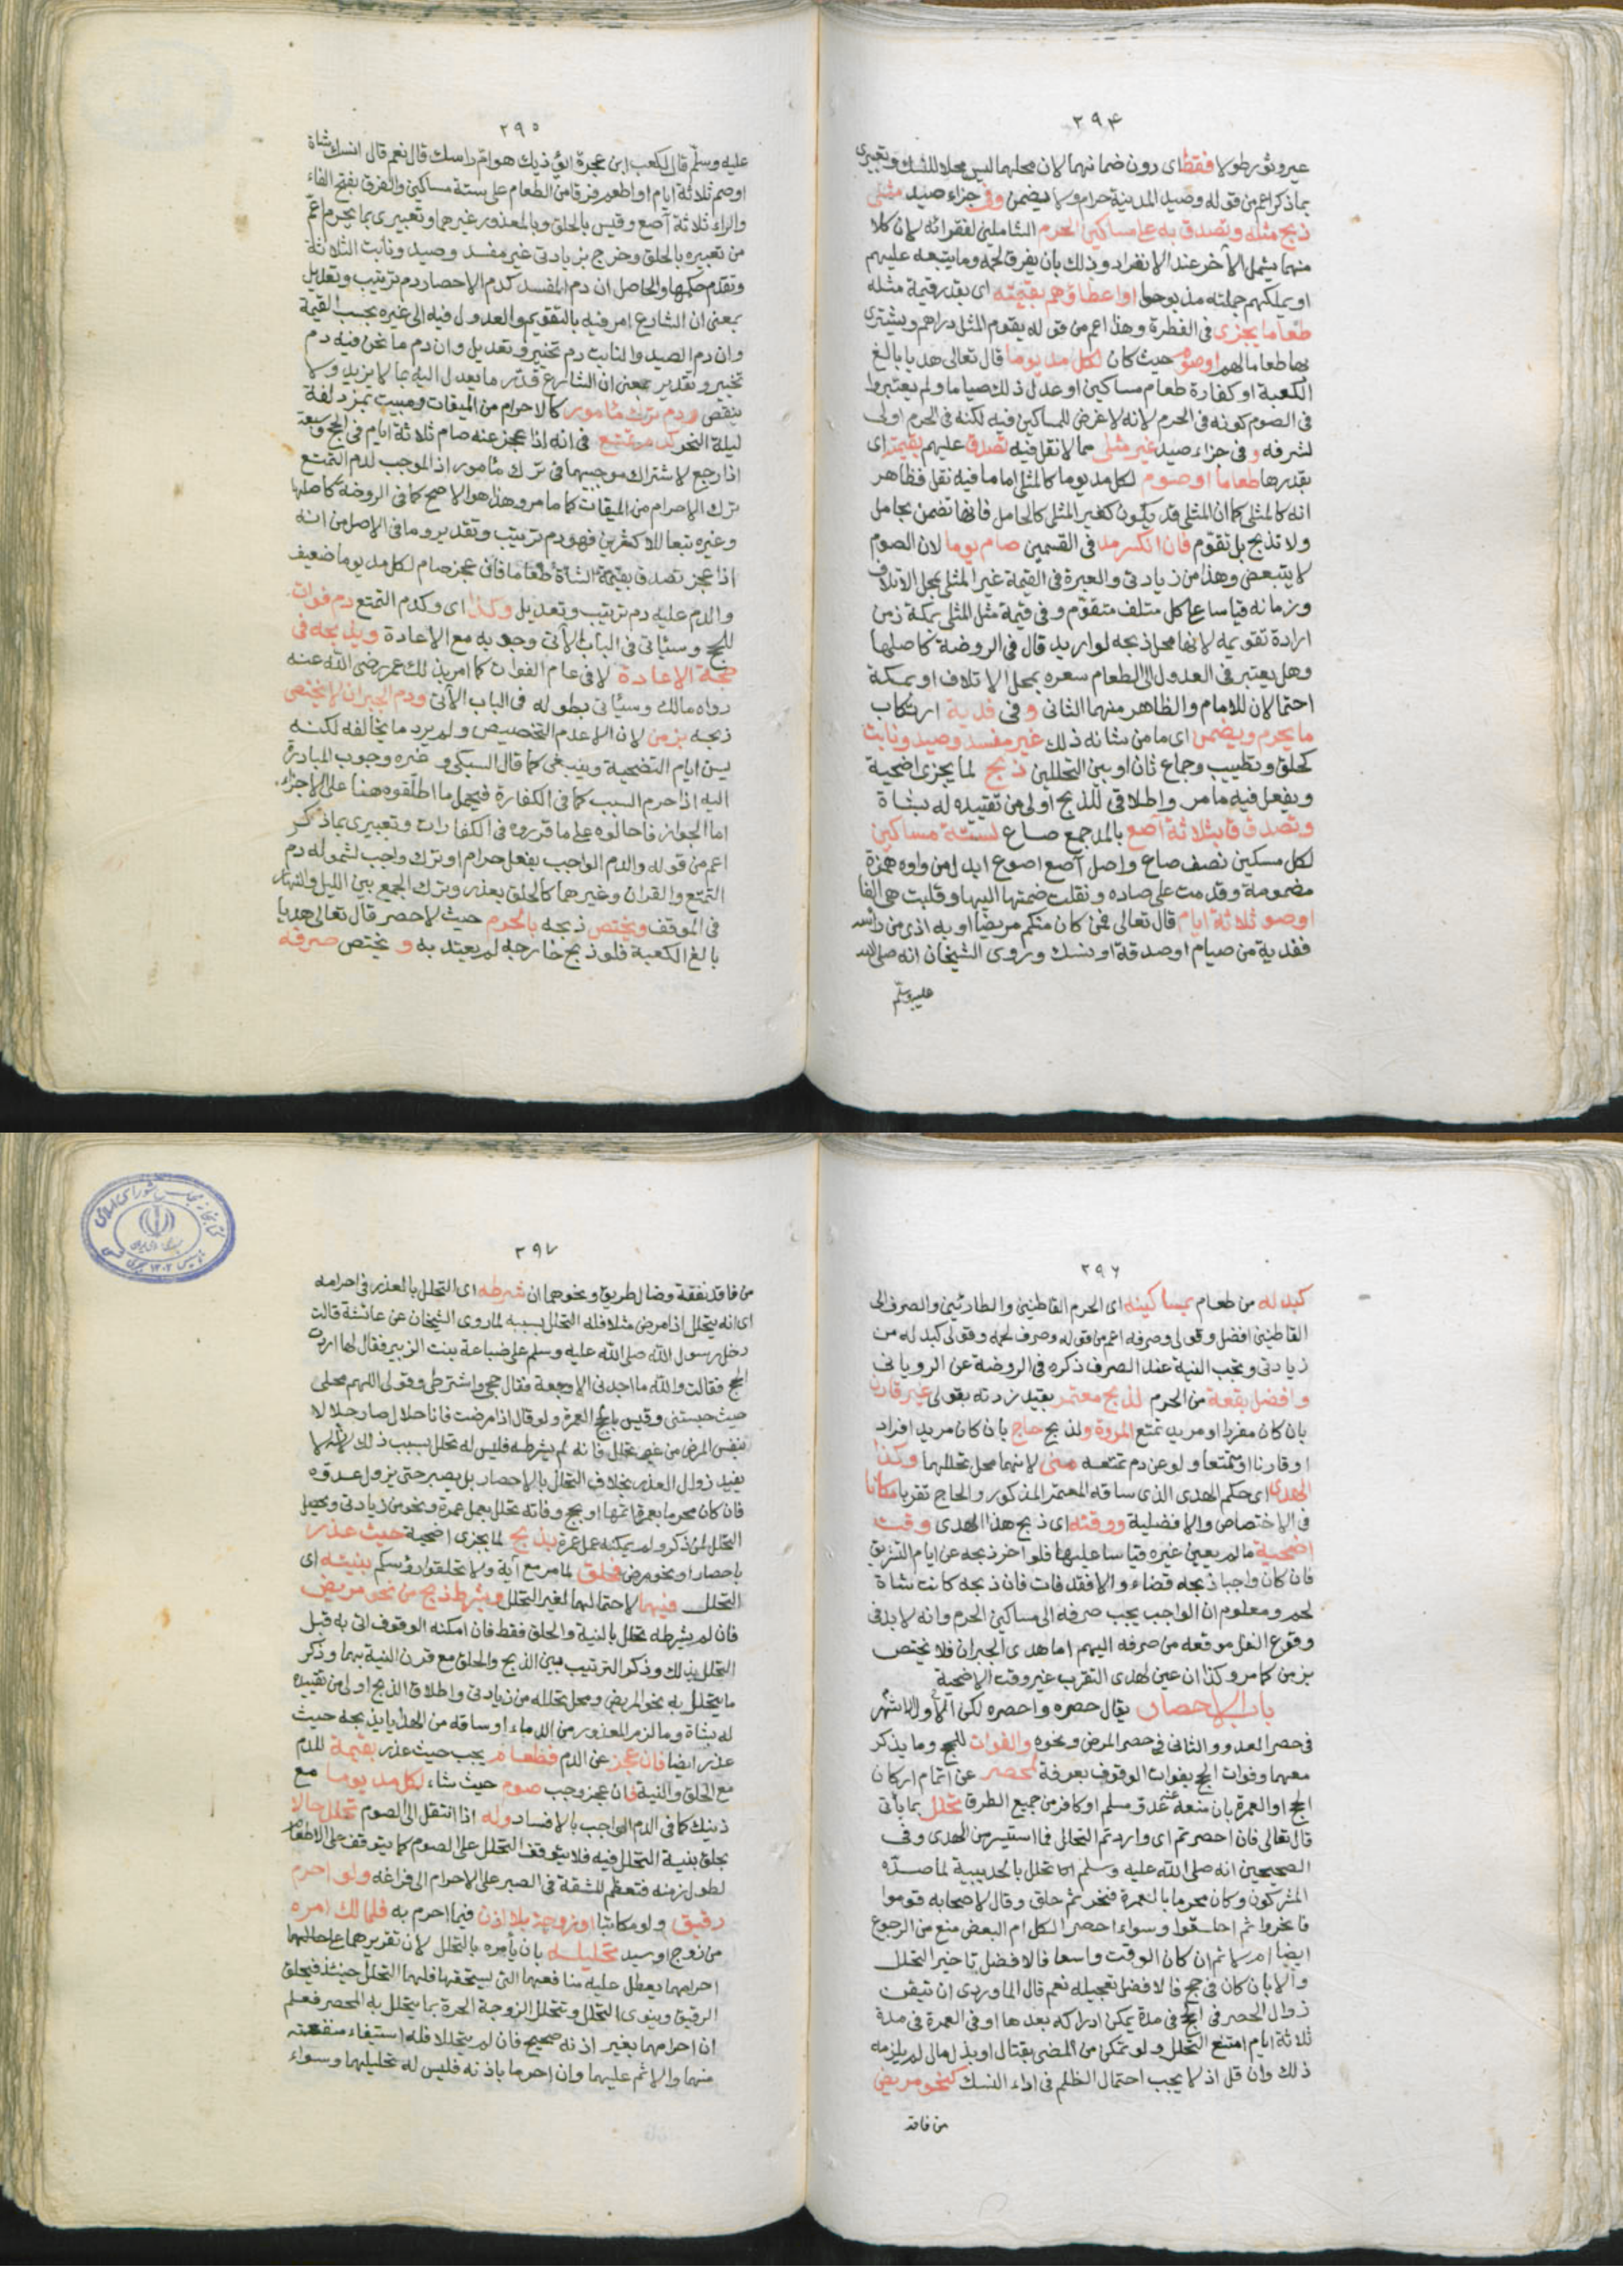 ٢٩٤
عير وثور طولا فقط اى دون ضمانهما لان محلهما ليس محلا للنسك وتعبيرى
بما ذكر اعم من قوله وصيد المدينة حرام ولا يضمن وفى جزاء صيد مثلى
ذبح مثله وتصدق به على مساكين الحرم الشاملين لفقرائه لان كلا
منهما يشمل الآخر عند الانفراد وذلك بان يفرق لحمه وما يتبعه عليهم
او يملكهم جملته مذبوحا او اعطاؤهم بقيمته اى بقدر قيمة مثله
طعاما يجزى فى الفطرة وهذا اعم من قوله يقوم المثل دراهم ويشترى
بها طعاما لهم او صوم حيث كان لكل مد يوما قال تعالى هديا بالغ
الكعبة او كفارة طعام مساكين او عدل ذلك صياما ولم يعتبروا
فى الصوم كونه فى الحرم لانه لا غرض للمساكين فيه لكنه فى الحرم اولى
لشرفه و فى جزاء صيد غير مثلى مما لا نقل فيه تصدق عليهم بقيمته اى
بقدرها طعاما او صوم لكل مد يوما كالمثلى اما ما فيه نقل فظاهر
انه كالمثلى كما ان المثلى قد يكون كغير المثلى كالحامل فانها تضمن بحامل
ولا تذبح بل تقوم فان انكسر مد فى القسمين صام يوما لان الصوم
لا يتبعض وهذا من زيادتى والعبرة فى القيمة غير المثلى بمحل الاتلاف
وزمانه قياسا على كل متلف متقوم وفى قيمة مثل المثلى بمكة زمن
ارادة تقويمه لانها محل ذبحه لو اريد قال فى الروضة كاصلها
وهل يعتبر فى العدول الى الطعام سعره بمحل الاتلاف او بمكة
احتمالان للامام والظاهر منهما الثانى و فى فدية ارتكاب
ما يحرم ويضمن اى ما من شانه ذلك غير مفسد وصيد ونابت
كحلق وتطييب وجماع ثان او بين التحللين ذبح لما يجزى اضحية
ويفعل فيه ما مر واطلاقى للذبح اولى من تقييده له بشاة
وتصدق بثلاثة آصع بالمد جمع صاع لستة مساكين
لكل مسكين نصف صاع واصل آصع اصوع ابدل من واوه همزة
مضمومة وقدمت على صاده ونقلت ضمتها اليها وقلبت هى الفا
او صوم ثلاثة ايام قال تعالى فمن كان منكم مريضا او به اذى من راسه
ففدية من صيام او صدقة او نسك وروى الشيخان انه صلى الله
عليه وسلم
٢٩٥
عليه وسلم قال لكعب ابن عجرة ايؤذيك هوام راسك قال نعم قال انسك شاة
او صم ثلاثة ايام او اطعم فرقا من الطعام على ستة مساكين والفرق بفتح الفاء
والراء ثلاثة آصع وقيس بالحلق وبالمعذور غيرهما وتعبيرى بما يحرم اعم
من تعبيره بالحلق وخرج بزيادتى غير مفسد وصيد ونابت الثلاثة
وتقدم حكمها والحاصل ان دم المفسد كدم الاحصار دم ترتيب وتعديل
بمعنى ان الشارع امر فيه بالتقويم والعدول فيه الى غيره بحسب القيمة
وان دم الصيد والنابت دم تخيير وتعديل وان دم ما نحن فيه دم
تخيير وتقدير بمعنى ان الشارع قدر ما يعدل اليه بما لا يزيد ولا
ينقص ودم ترك مامور كالاحرام من الميقات ومبيت بمزدلفة
ليلة النحر كدم تمتع فى انه اذا عجز عنه صام ثلاثة ايام فى الحج وسبعة
اذا رجع لاشتراك موجبيهما فى ترك مامور اذ الموجب لدم التمتع
ترك الاحرام من الميقات كما مر وهذا هو الاصح كما فى الروضة كاصلها
وغيره تبعا للاكثرين فهو دم ترتيب وتقدير وما فى الاصل من انه
اذا عجز تصدق بقيمة الشاة طعاما فان عجز صام لكل مد يوما ضعيف
والدم عليه دم ترتيب وتعديل وكذا اى وكدم التمتع دم فوات
للحج وسياتى فى الباب الآتى وجوبه مع الاعادة ويذبحه فى
حجة الاعادة لا فى عام الفوات كما امر بذلك عمر رضى الله عنه
رواه مالك وسياتى بطوله فى الباب الآتى ودم الجبران لا يختص
ذبحه بزمن لان الاصل عدم التخصيص ولم يرد ما يخالفه لكنه
يسن ايام التضحية وينبغى كما قال السبكى وغيره وجوب المبادرة
اليه اذا حرم السبب كما فى الكفارة فيحمل ما اطلقوه هنا على الاجزاء
اما الجواز فاحالوه على ما قرروه فى الكفارات وتعبيرى بما ذكر
اعم من قوله والدم الواجب بفعل حرام او ترك واجب لشموله دم
التمتع والقران وغيرهما كالحلق بعذر وترك الجمع بين الليل والنهار
فى الموقف ويختص ذبحه بالحرم حيث لا حصر قال تعالى هديا
بالغ الكعبة فلو ذبح خارجه لم يعتد به و يختص صرفه
٢٩٦
كبدله من طعام بمساكينه اى الحرم القاطنين والطارئين والصرف الى
القاطنين افضل وقولى وصرفه اعم من قوله وصرف لحمه وقولى كبدله من
زيادتى وتجب النية عند الصرف ذكره فى الروضة عن الرويانى
وافضل بقعة من الحرم لذبح معتمر بقيد زدته بقولى غير قارن
بان كان مفردا او مريد تمتع المروة ولذبح حاج بان كان مريد افراد
او قارنا او متمتعا ولو عن دم تمتعه منى لانهما محل تحللهما وكذا
الهدى اى حكم الهدى الذى ساقه المعتمر المذكور والحاج تقربا مكانا
فى الاختصاص والافضلية ووقته اى ذبح هذا الهدى وقت
اضحية ما لم يعين غيره قياسا عليها فلو اخر ذبحه عن ايام التشريق
فان كان واجبا ذبحه قضاء والا فقد فات فان ذبحه كانت شاة
لحم ومعلوم ان الواجب يجب صرفه الى مساكين الحرم وانه لا بد فى
وقوع النفل موقعه من صرفه اليهم اما هدى الجبران فلا يختص
بزمن كما مر وكذا ان عين لهدى التقرب غير وقت الاضحية
باب الاحصار يقال حصره واحصره لكن الاول اشهر
فى حصر العدو والثانى فى حصر المرض ونحوه والفوات للحج وما يذكر
معهما وفوات الحج بفوات الوقوف بعرفة لمحصر عن اتمام اركان
الحج او العمرة بان منعه عنه عدو مسلم او كافر من جميع الطرق تحلل بما ياتى
قال تعالى فان احصرتم اى واردتم التحلل فما استيسر من الهدى وفى
الصحيحين انه صلى الله عليه وسلم تحلل بالحديبية لما صده
المشركون وكان محرما بالعمرة فنحر ثم حلق وقال لاصحابه قوموا
فانحروا ثم احلقوا وسواء احصر الكل ام البعض منع من الرجوع
ايضا ام لا ثم ان كان الوقت واسعا فالافضل تاخير التحلل
والا بان كان فى حج فالافضل تعجيله نعم قال الماوردى ان تيقن
زوال الحصر فى الحج فى مدة يمكن ادراكه بعدها او فى العمرة فى مدة
ثلاثة ايام امتنع التحلل ولو تمكن من المضى بقتال او بذل مال لم يلزمه
ذلك وان قل اذ لا يجب احتمال الظلم فى اداء النسك كنحو مريض
من فاقد
٢٩٧
من فاقد نفقة وضال طريق ونحوهما ان شرطه اى التحلل بالعذر فى احرامه
اى انه يتحلل اذا مرض مثلا فله التحلل بسببه لما روى الشيخان عن عائشة قالت
دخل رسول الله صلى الله عليه وسلم على ضباعة بنت الزبير فقال لها اردت
الحج فقالت والله ما اجدنى الا وجعة فقال حجى واشترطى وقولى اللهم محلى
حيث حبستنى وقيس بالحج العمرة ولو قال اذا مرضت فانا حلال صار حلالا
بنفس المرض من غير تحلل فانه لم يشرطه فليس له تحلل بسبب ذلك لانه لا
يفيد زوال العذر بخلاف التحلل بالاحصار بل يصبر حتى يزول عذره
فان كان محرما بعمرة اتمها او بحج وفاته تحلل بعمل عمرة ونحو من زيادتى ويحصل
التحلل لمن ذكر ولم يمكنه عمل عمرة بذبح لما يجزى اضحية حيث عذر
باحصار او نحو مرض فحلق لما مر مع آية ولا تحلقوا رؤسكم بنيته اى
التحلل فيهما لاحتمالهما لغير التحلل وبشرط ذبح من نحو مريض
فان لم يشرطه تحلل بالنية والحلق فقط فان امكنه الوقوف اتى به قبل
التحلل بذلك وذكر الترتيب بين الذبح والحلق مع قرن النية بهما وذكر
ما يتحلل به نحو المريض ومحل تحلله من زيادتى واطلاق الذبح اولى من تقييده
له بشاة وما لزم المعذور من الدماء او ساقه من الهدايا يذبحه حيث
عذر ايضا فان عجز عن الدم فطعام يجب حيث عذر بقيمة للدم
مع الحلق والنية فان عجز وجب صوم حيث شاء لكل مد يوما مع
ذينك كما فى الدم الواجب بالافساد وله اذا انتقل الى الصوم تحلل حالا
بحلق بنية التحلل فيه فلا يتوقف التحلل على الصوم كما يتوقف على الاطعام
لطول زمنه فتعظم المشقة فى الصبر على الاحرام الى فراغه ولو احرم
رقيق ولو مكاتبا او زوجة بلا اذن فيما احرم به فلمالك امره
من زوج او سيد تحليله بان يأمره بالتحلل لان تقريرهما على احرامهما
احرامهما يعطل عليه منافعهما التى يستحقها فلهما التحلل حينئذ فيحلق
الرقيق وينوى التحلل وتتحلل الزوجة الحرة بما يتحلل به المحصر فعلم
ان احرامهما بغير اذنه صحيح فان لم يتحللا فله استيفاء منفعته
منهما والاثم عليهما وان احرما باذنه فليس له تحليلهما وسواء